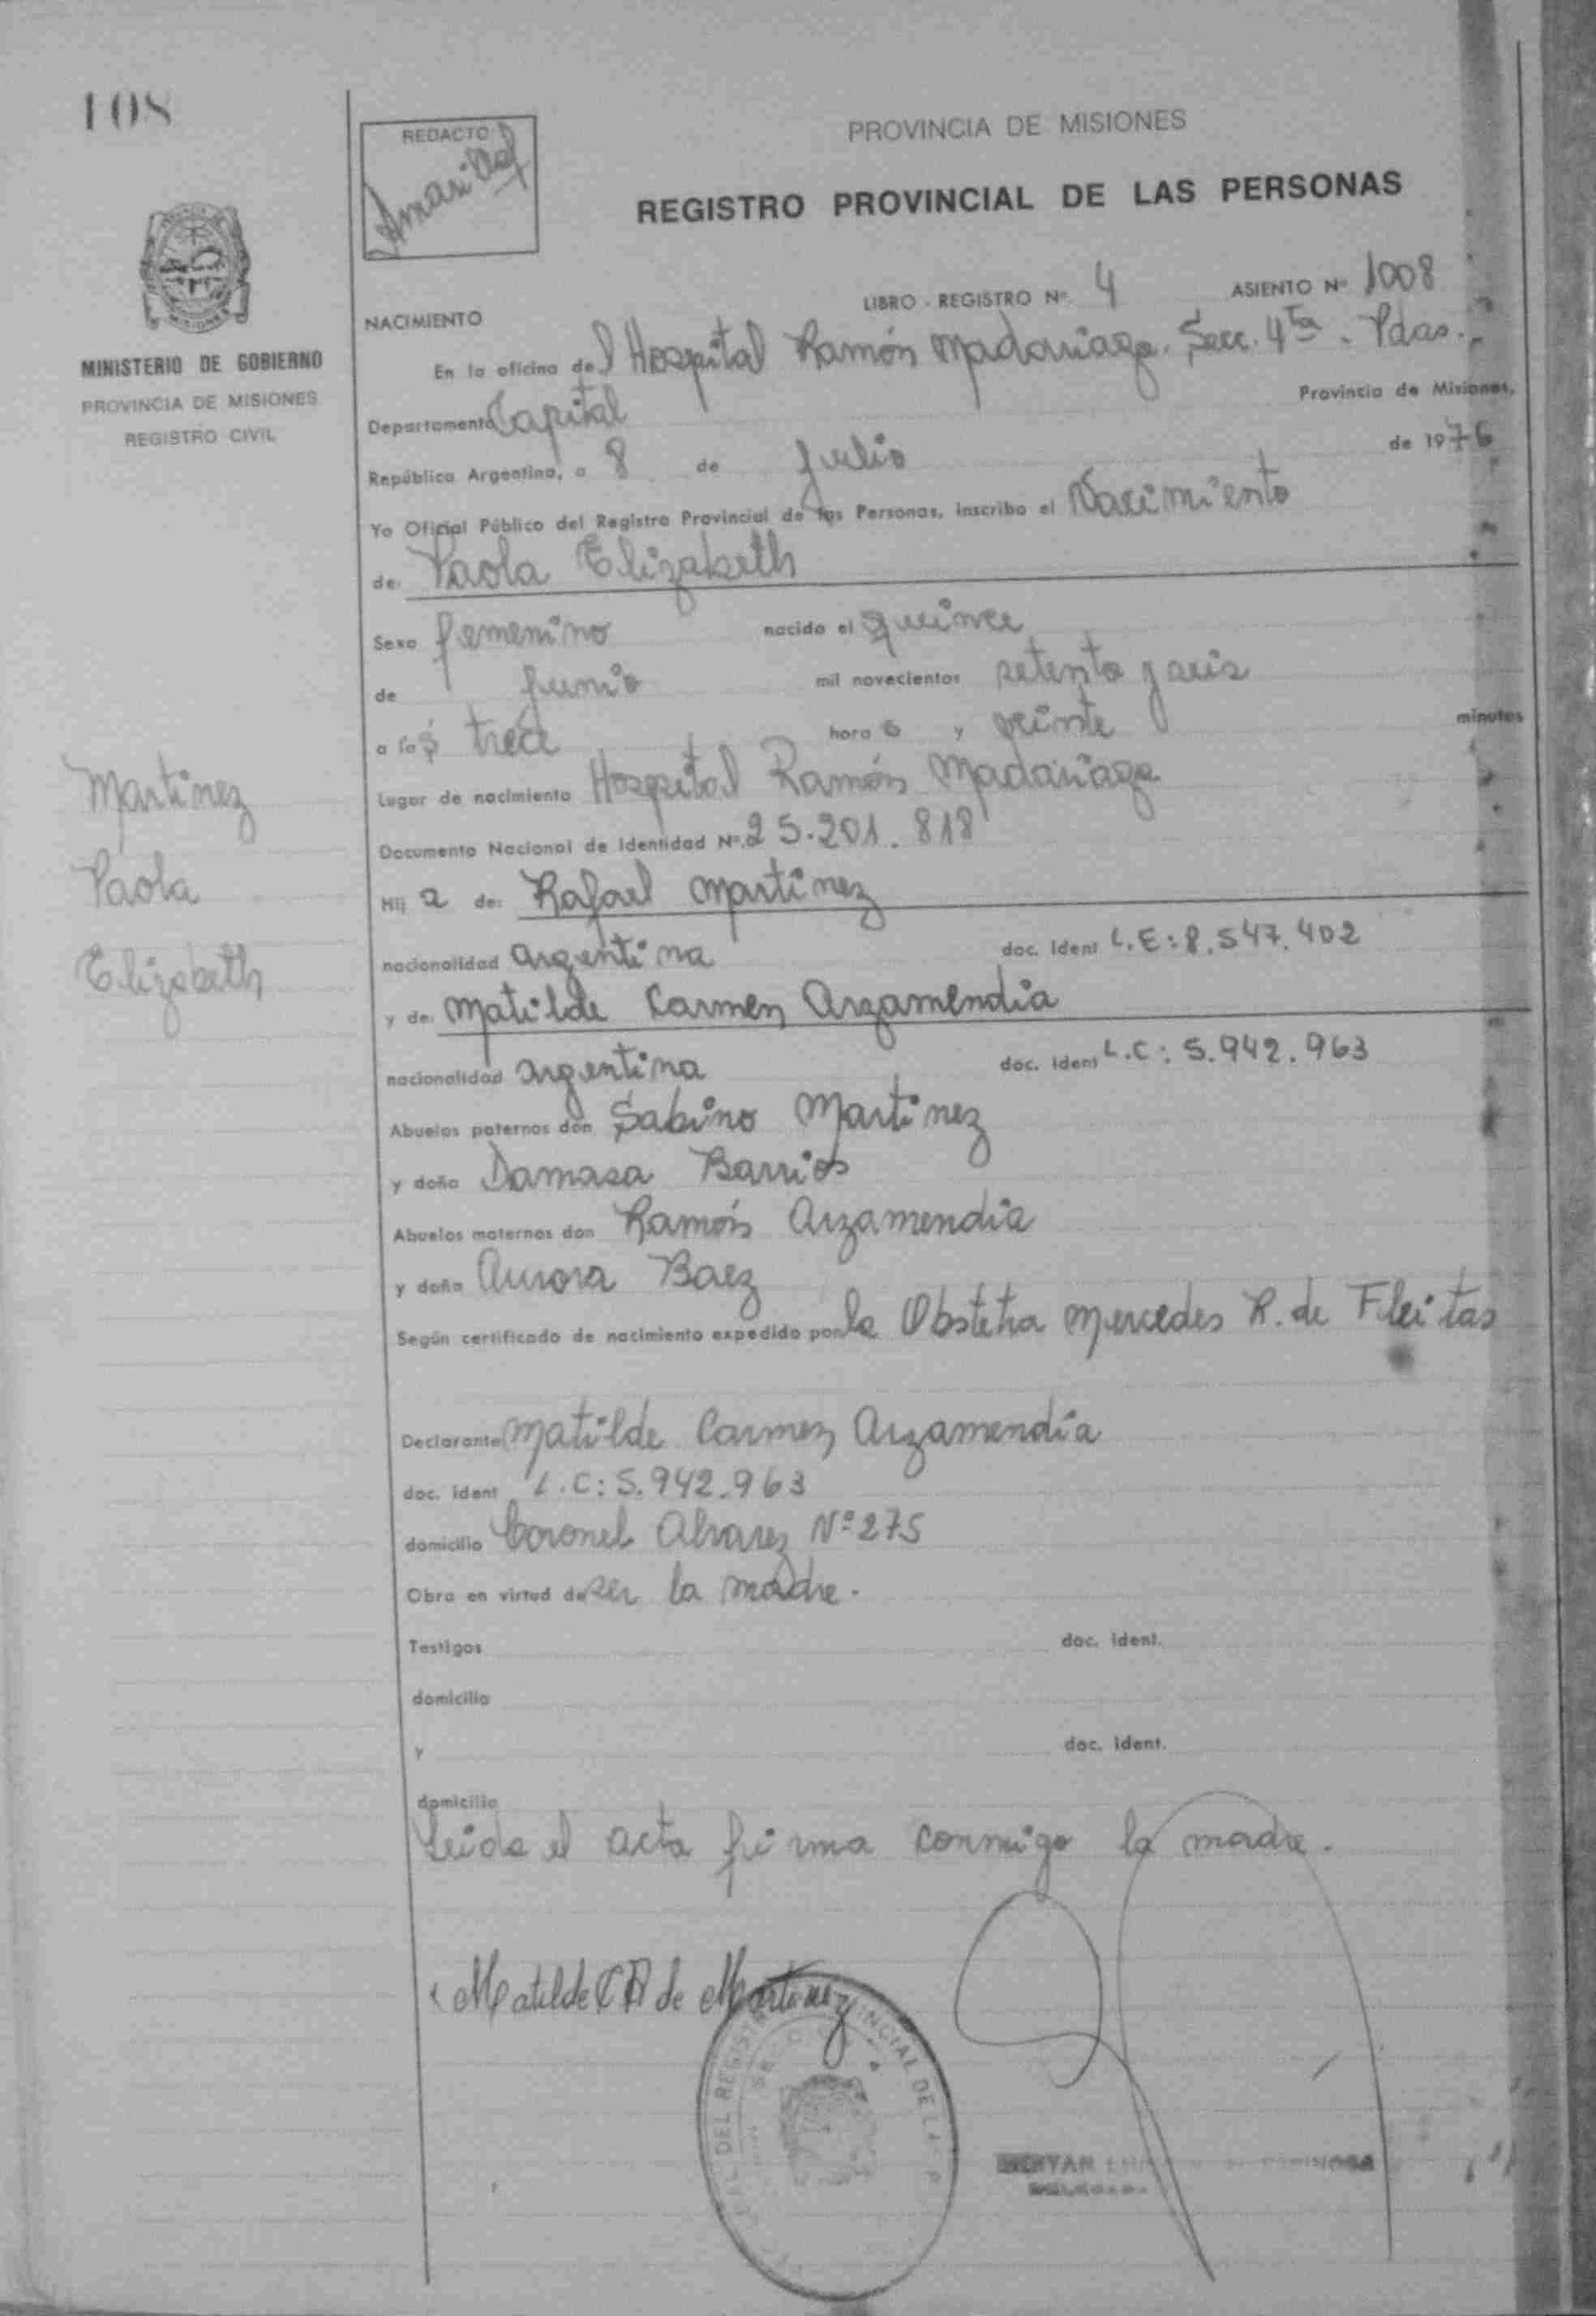 108
REDACTO
PROVINCIA DE MISIONES
REGISTRO PROVINCIAL DE LAS PERSONAS
MISIONES
MINISTERIO DE GOBIERNO
PROVINCIA DE MISIONES
REGISTRO CIVIL
LIBRO - REGISTRO Nº 4 ASIENTO Nº 1008
NACIMIENTO
En la oficina del Hospital Ramón Madariaga. Secc. 4ta - Pdas.-
Departamento Capital Provincia de Misiones,
República Argentina, a 8 de Julio de 1976
Yo Oficial Público del Registro Provincial de las Personas, inscribo el Nacimiento
de: Paola Elizabeth
Sexo femenino nacido el quince
de junio mil novecientos setenta y seis
a las trece horas y veinte minutos
Lugar de nacimiento Hospital Ramón Madariaga
Documento Nacional de Identidad Nº 25.201.818
Hij a de: Rafael Martinez
nacionalidad argentina doc. ident L.E: 8.547.402
y de: Matilde Carmen Arzamendia
nacionalidad argentina doc. ident L.C: 5.942.963
Abuelos paternos don Sabino Martinez
y doña Damasa Barrios
Abuelos maternos don Ramón Arzamendia
y doña Aurora Baez
Según certificado de nacimiento expedido por la Obstetra Mercedes R. de Fleitas
Declarante Matilde Carmen Arzamendía
doc. ident L.C: 5.942.963
domicilio Coronel Alvarez Nº 275
Obra en virtud de ser la madre.
Testigos doc. ident.
domicilio
y doc. ident.
domicilio
Leida el acta firma conmigo la madre.
Matilde C A de Martinez
Martinez
Paola
Elizabeth